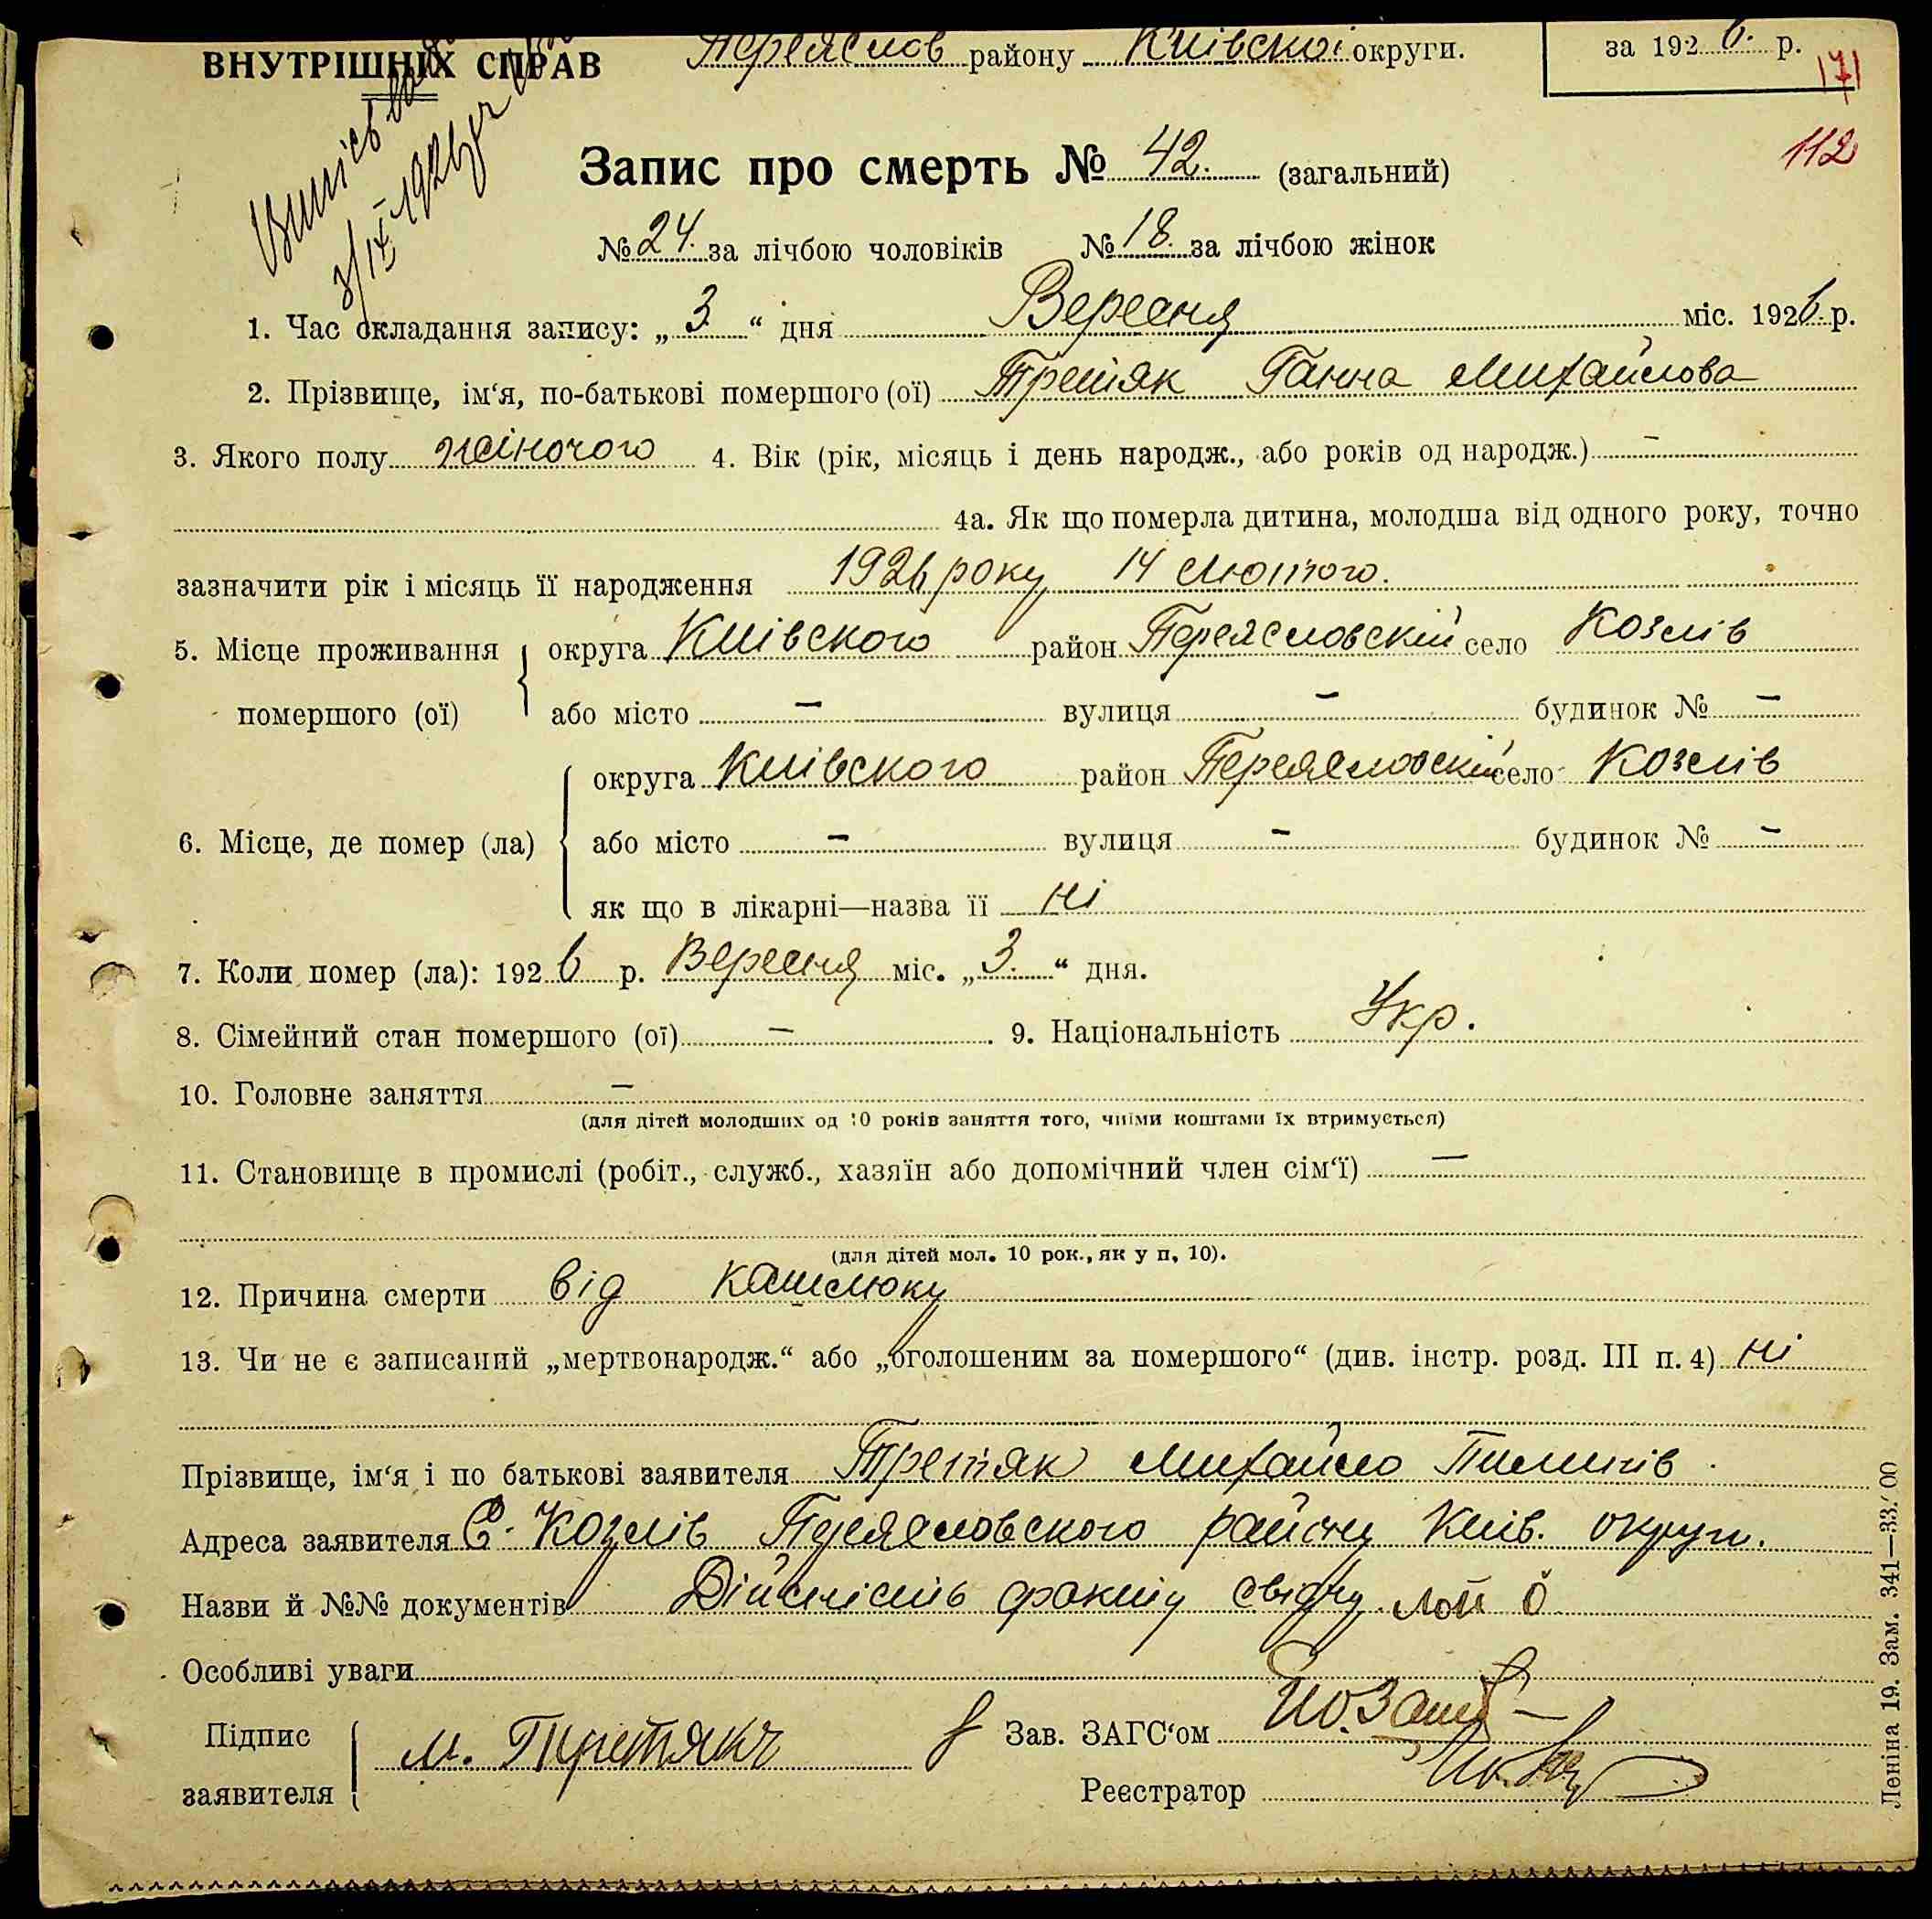 ВНУТРІШНІХ СПРАВ Переяслов району Київскої округи. за 1926. р.
171
112
3/IX 1926 р
Запис про смерть № 42. (загальний)
№ 24. за лічбою чоловіків № 18. за лічбою жінок
1. Час складання запису: „3“ дня Вересня міс. 1926 р.
2. Прізвище, ім‘я, по-батькові помершого (ої) Третяк Ганна Михайлова
3. Якого полу жіночого 4. Вік (рік, місяць і день народж., або років од народж.) –
4а. Як що померла дитина, молодша від одного року, точно
зазначити рік і місяць її народження 1926 року 14 Лютого.
5. Місце проживання округа Київского район Переясловскій село Козлів
помершого (ої) або місто – вулиця – будинок № –
округа Київского район Переясловскій село Козлів
6. Місце, де помер (ла) або місто – вулиця – будинок № –
як що в лікарні—назва її ні
7. Коли помер (ла): 1926 р. Вересня міс. „3.“ дня.
8. Сімейний стан помершого (ої) – . 9. Національність Укр.
10. Головне заняття –
(для дітей молодших од 10 років заняття того, чиїми коштами їх втримується)
11. Становище в промислі (робіт., служб., хазяїн або допомічний член сім‘ї) –
(для дітей мол. 10 рок., як у п. 10).
12. Причина смерти від кашлюку
13. Чи не є записаний „мертвонародж.“ або „оголошеним за помершого“ (див. інстр. розд. III п. 4) ні
Прізвище, ім‘я і по батькові заявителя Третяк Михайло Пилипів
Адреса заявителя С. Козлів Переясловского району Київ. округи.
Назви й №№ документів Дійсність факту свідчу
Особливі уваги
Підпис заявителя М. Третякъ Зав. ЗАГС‘ом
Реєстратор
Леніна 19. Зам. 341—33.000